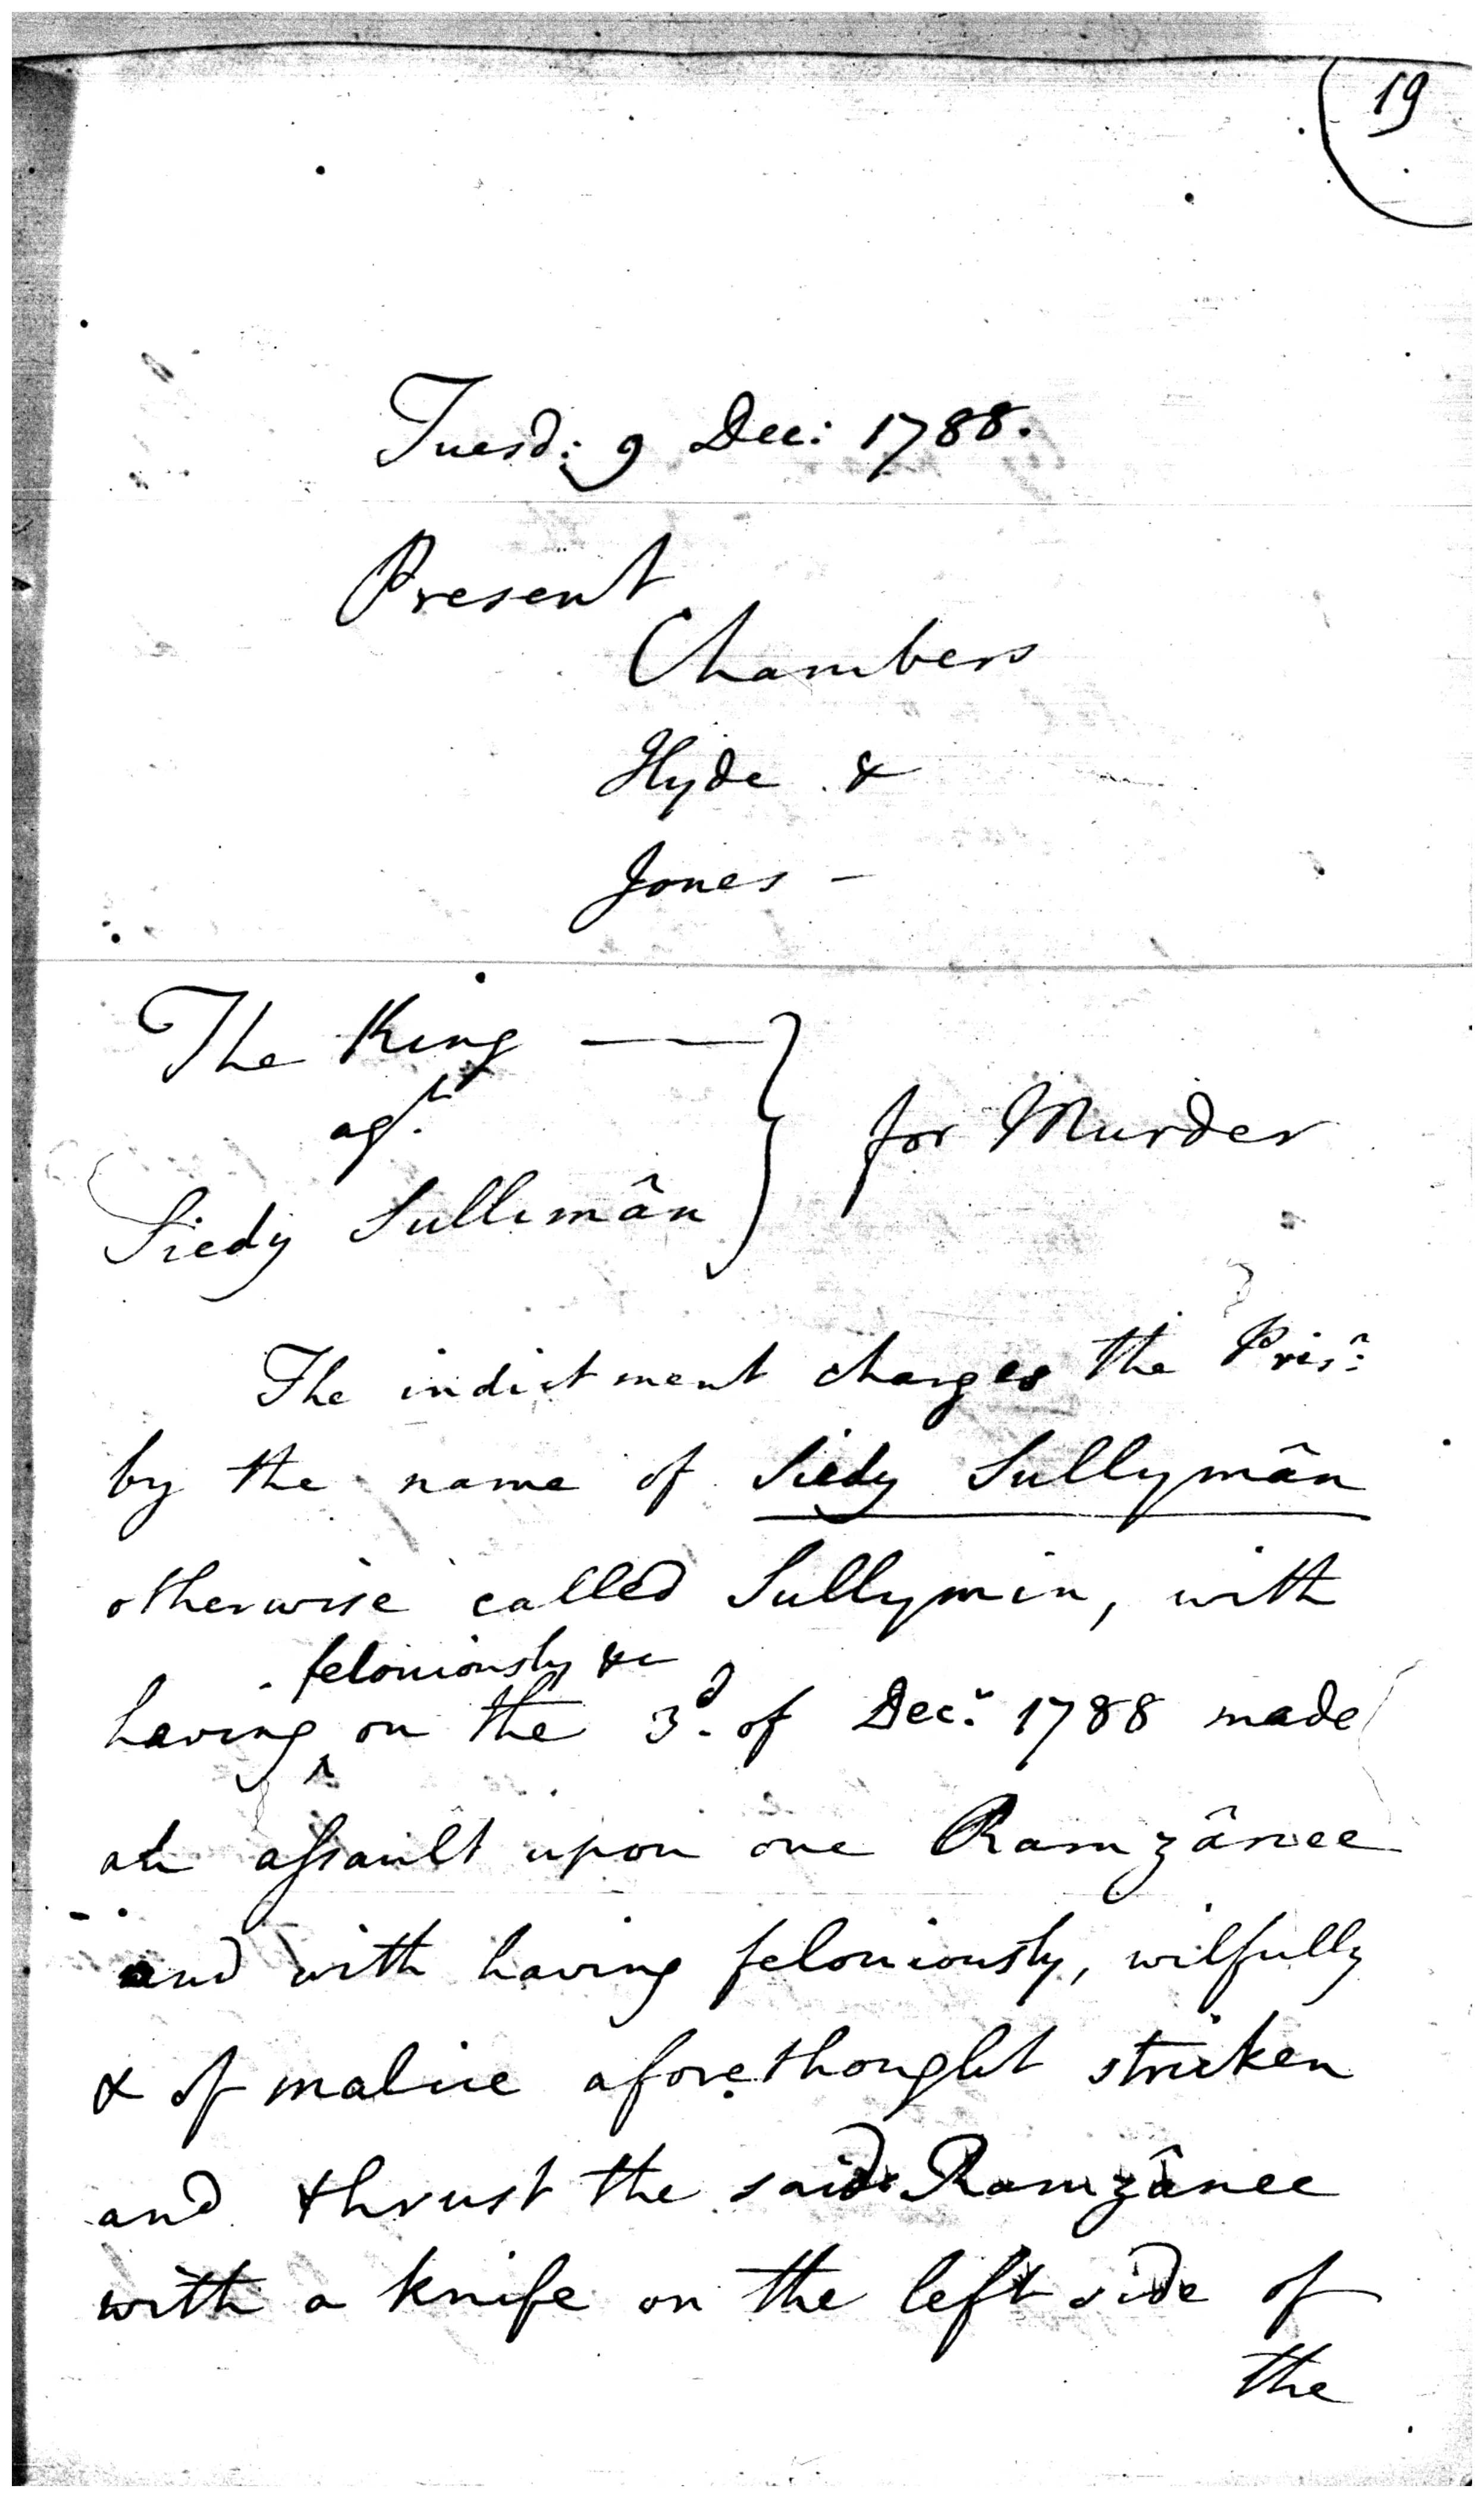 19
Tuesd: 9 Dec: 1788.
Present
Chambers
Hyde &
Jones -
The King —
agt.
Siedy Sullimân } for Murder
The indictment charges the Prisr:
by the name of Siedy Sullymân
otherwise called Sullymin, with
feloniously &c
having ^ on the 3d. of Decr: 1788 made
an assault upon one Ramzânee
and with having feloniously, wilfully
& of malice aforethought stricken
and thrust the said Ramzânee
with a knife on the left side of
the